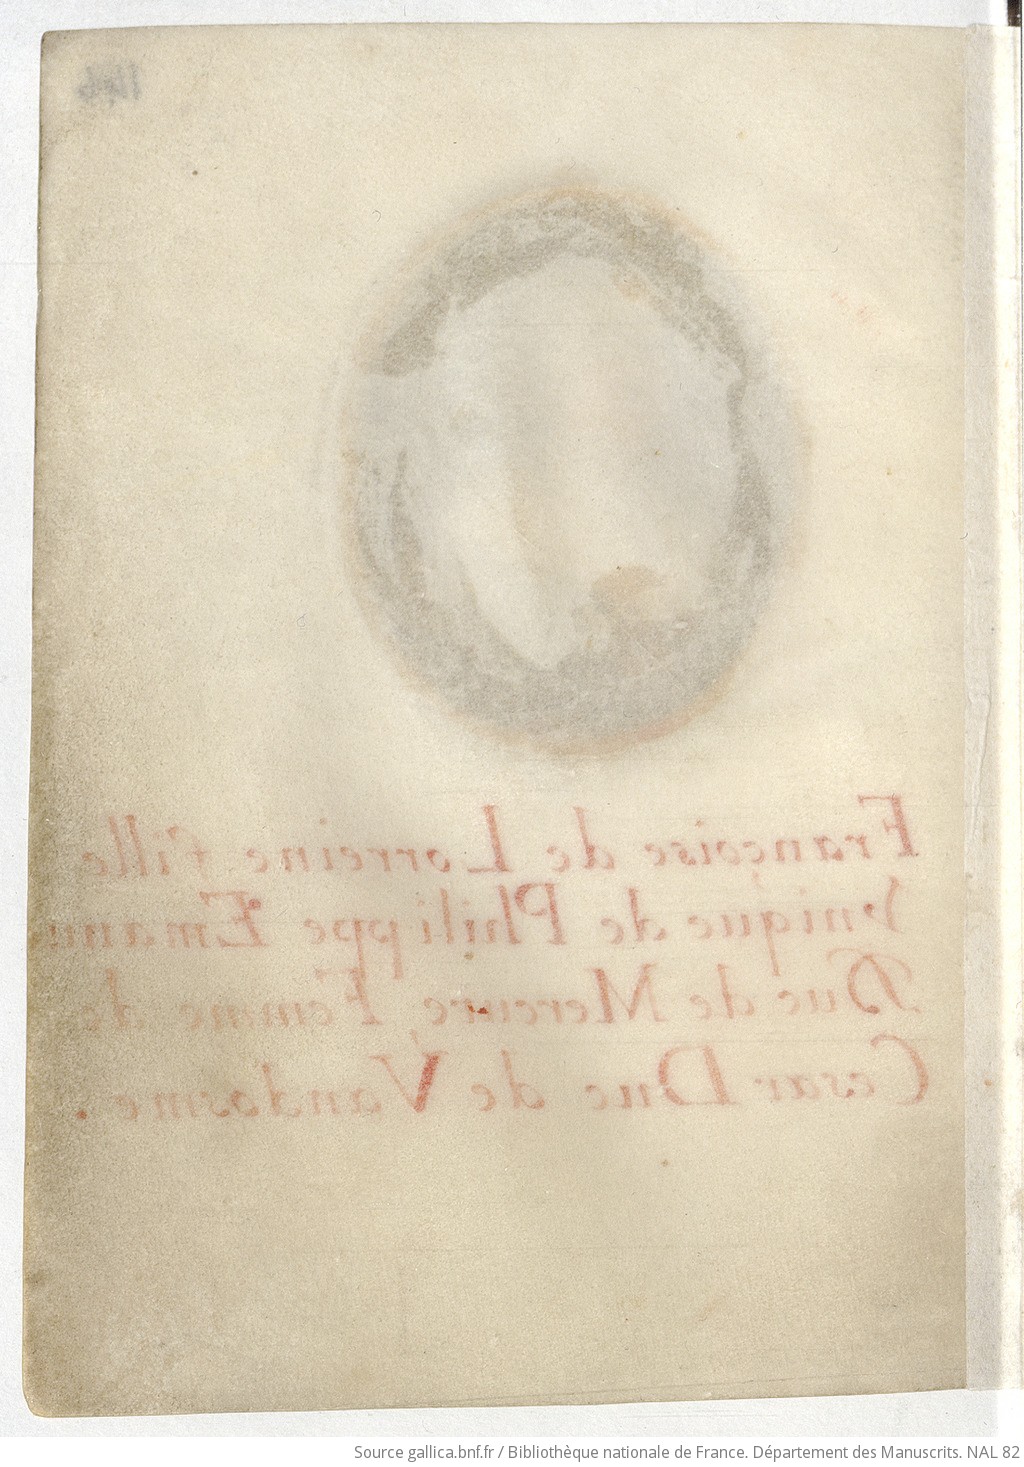 144
Françoise de Lorreine fille
Vnique de Philippe Emanu
Duc de Mercure, Femme de
Cesar Duc de Vandosme.
Source gallica.bnf.fr / Bibliothèque nationale de France. Département des Manuscrits. NAL 82